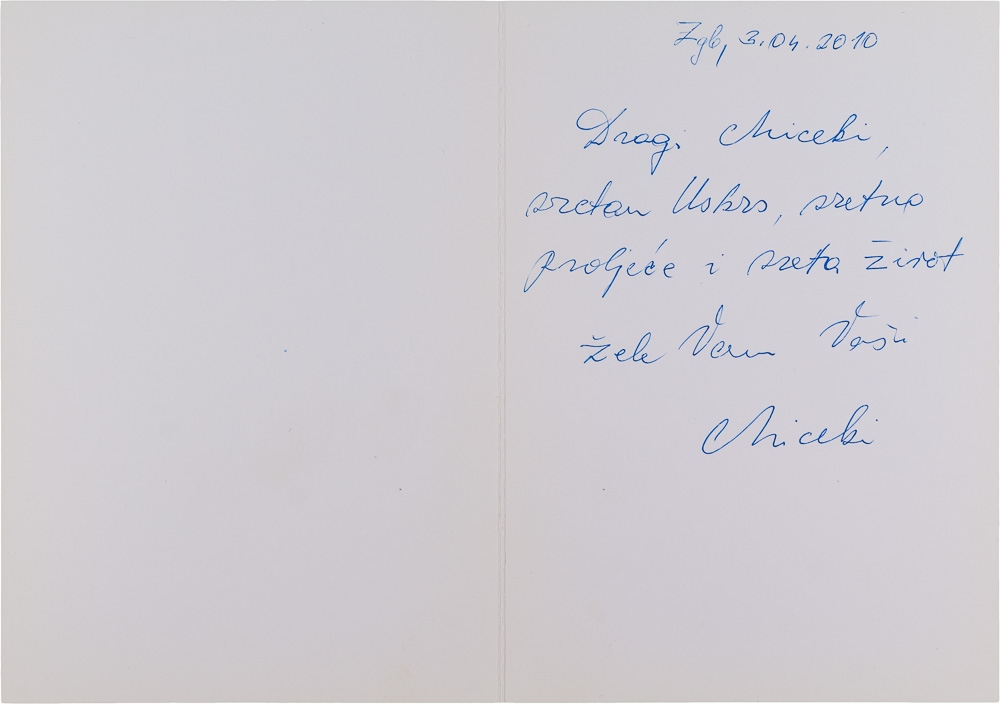 Zgb, 3.04.2010
Dragi Miceki,
sretan Uskrs, sretno
proljeće i sretan život
žele Vam Vaši
Miceki